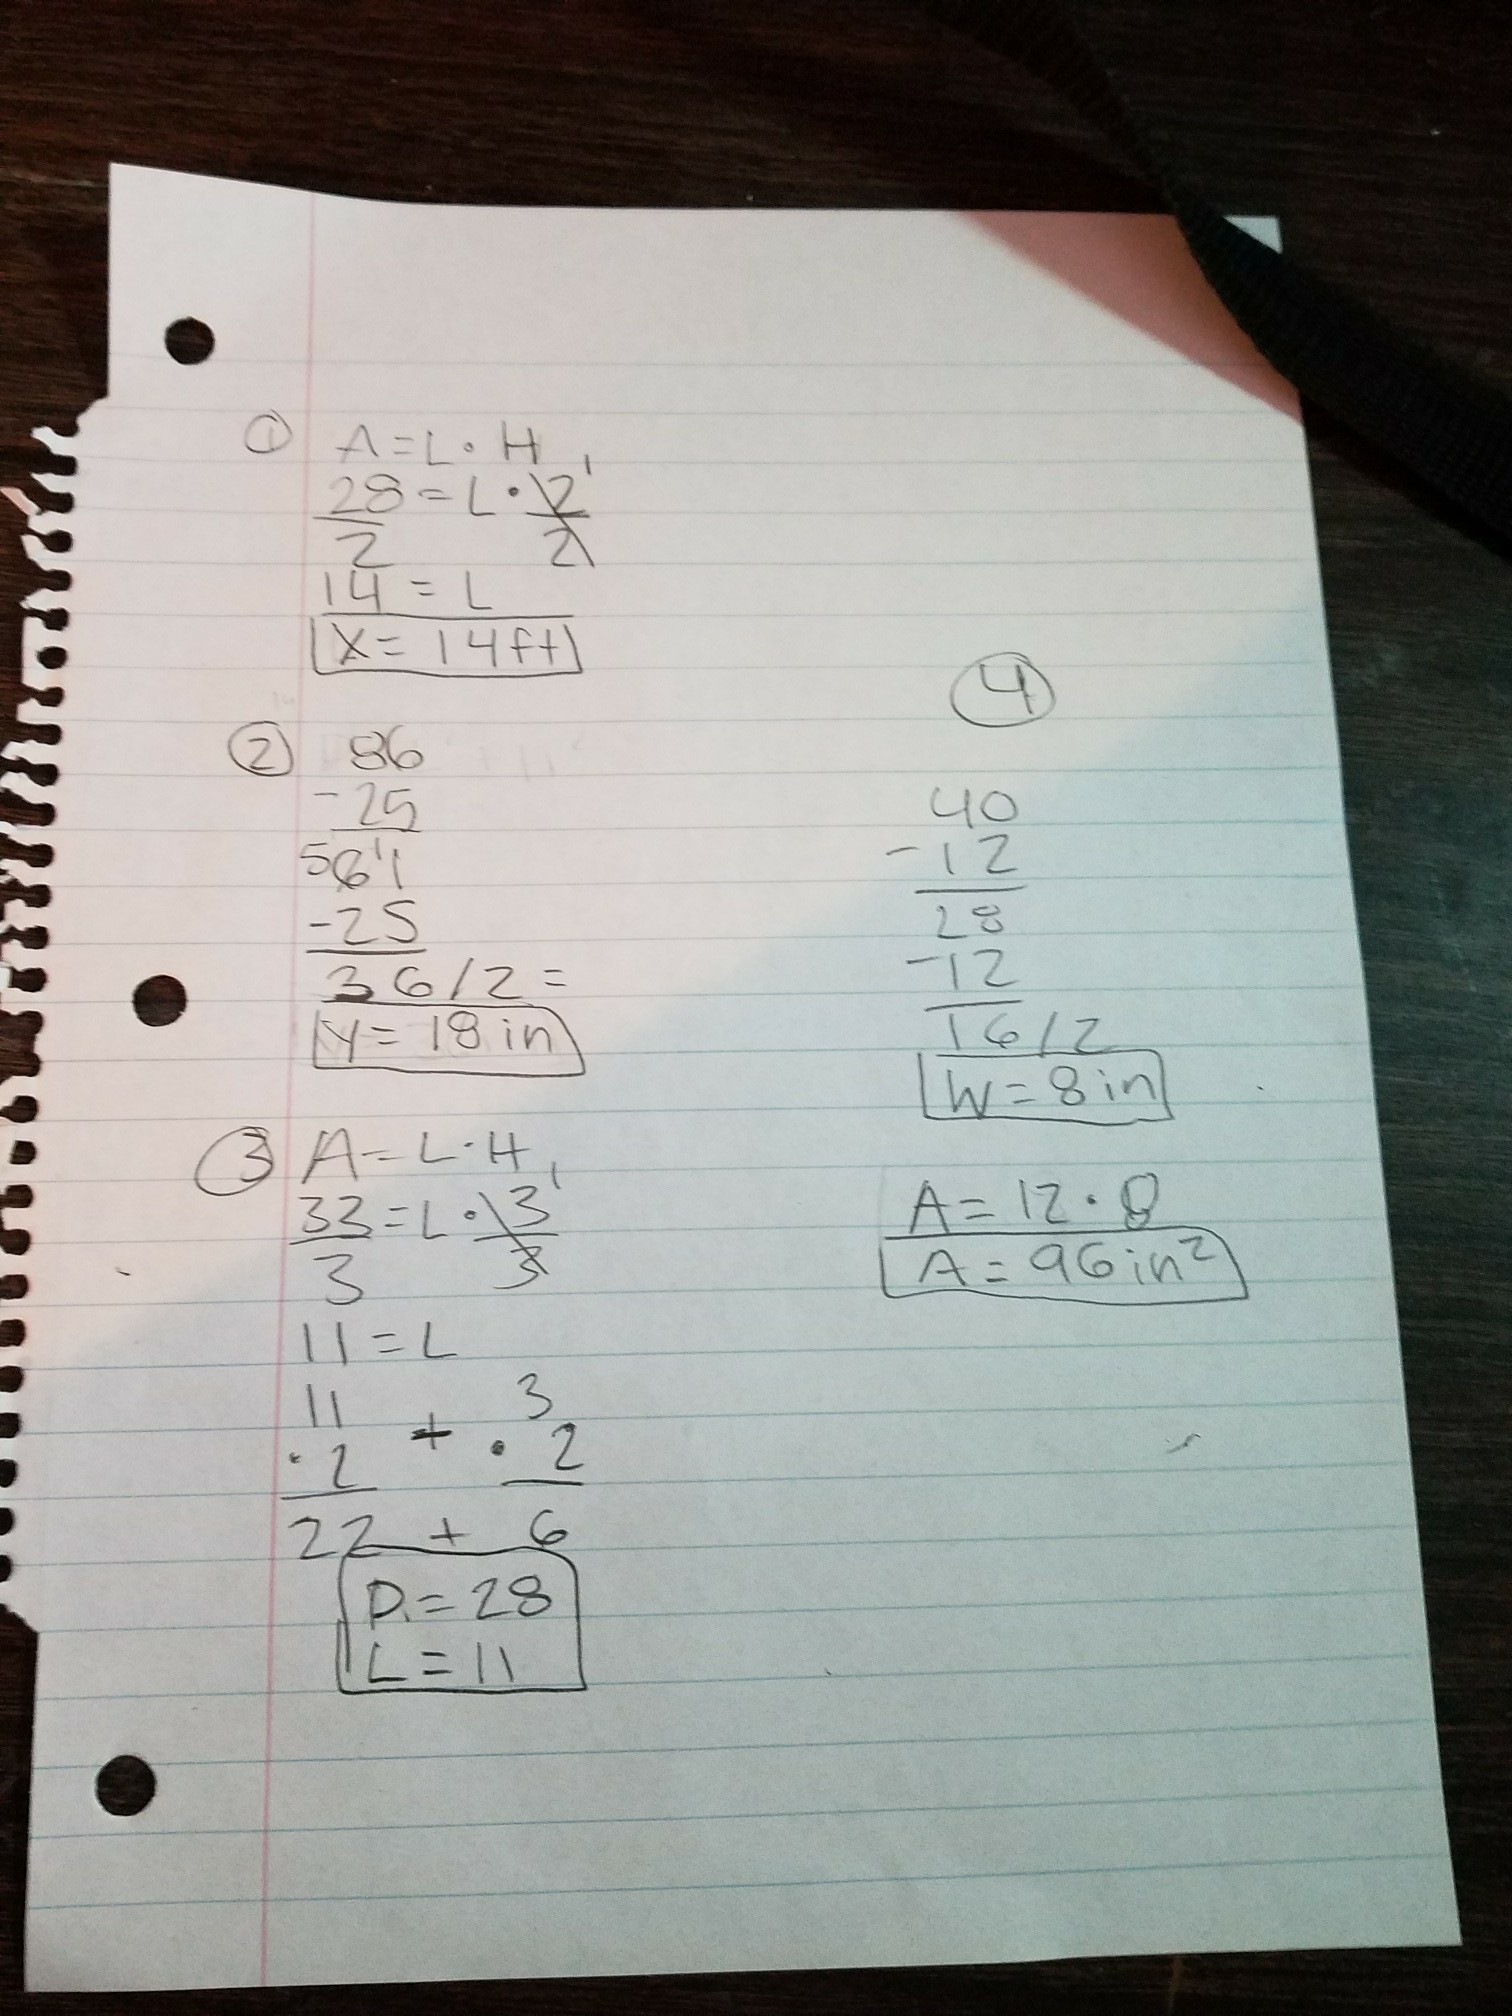 ① A = L · H
28 = L · 2 1
2 2
14 = L
X = 14ft
② 86
- 25
5 6 1 1
- 25
36 / 2 =
Y = 18 in
③ A = L · H
33 = L · 3 1
3 3
11 = L
11 + 3
· 2 · 2
22 + 6
P. = 28
L = 11
④
40
- 12
28
- 12
16 / 2
W = 8 in
A = 12 · 8
A = 96 in²